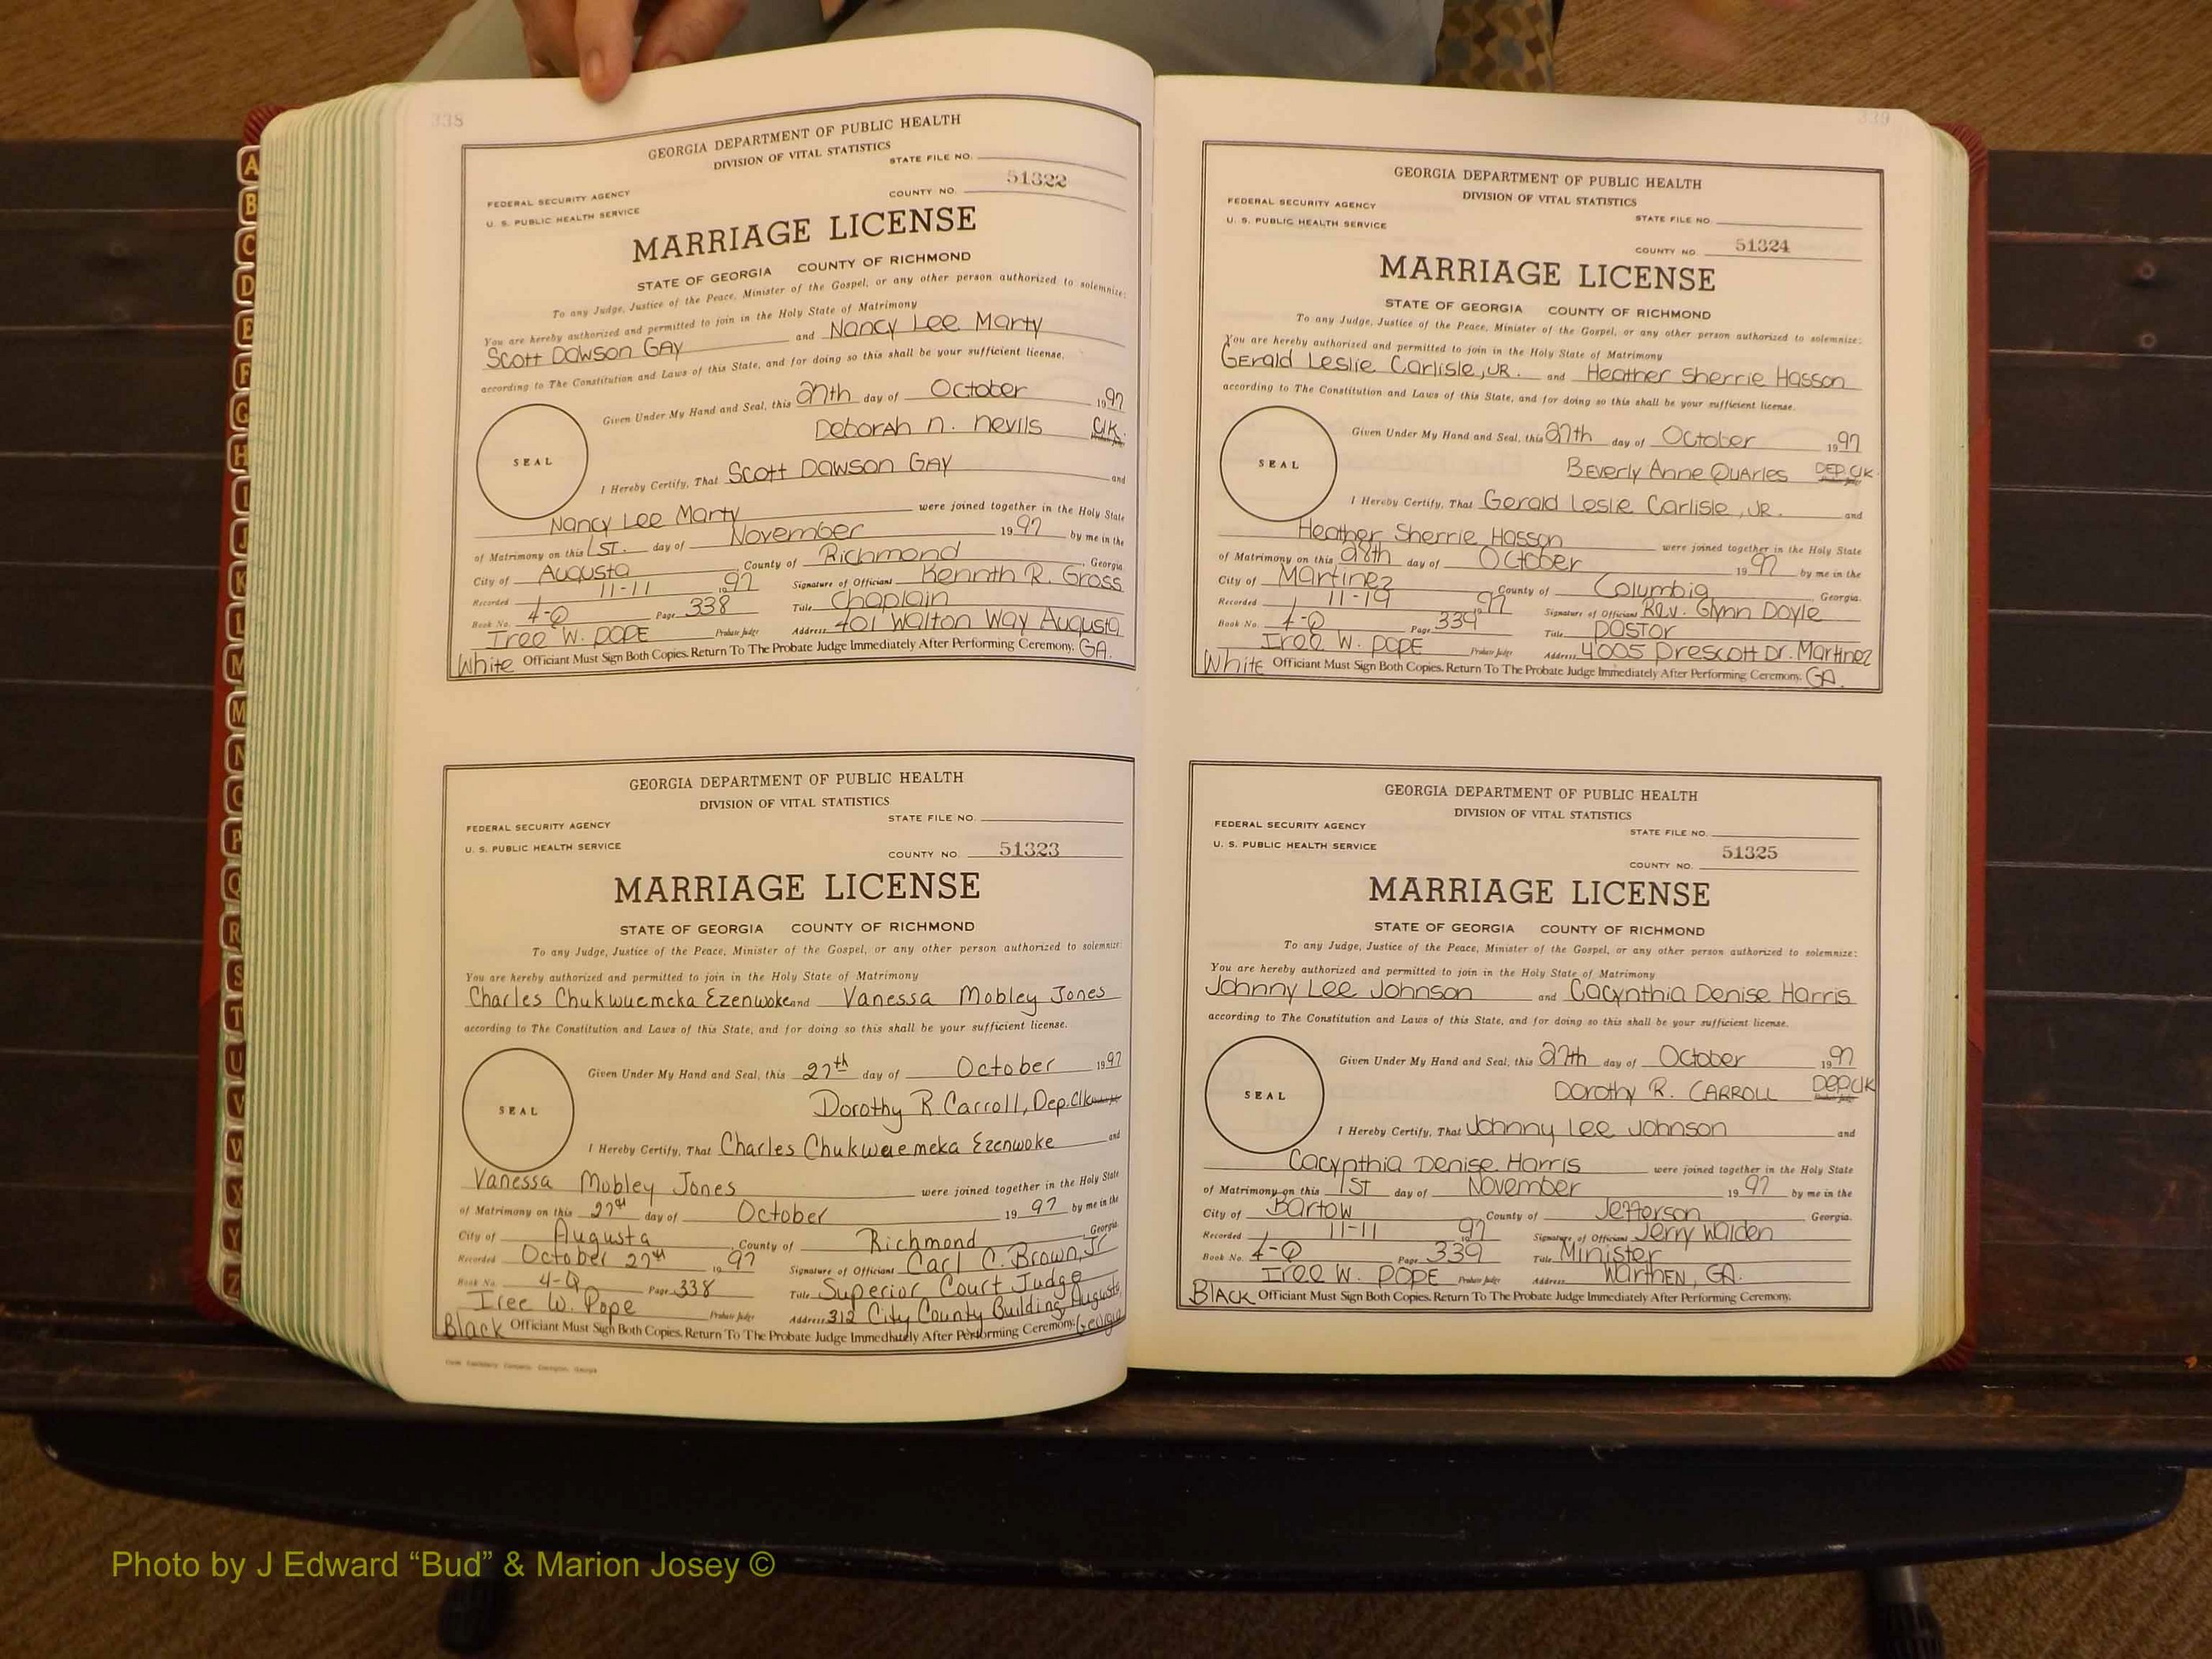 338
GEORGIA DEPARTMENT OF PUBLIC HEALTH
DIVISION OF VITAL STATISTICS
STATE FILE NO.
FEDERAL SECURITY AGENCY
U. S. PUBLIC HEALTH SERVICE
COUNTY NO. 51322
MARRIAGE LICENSE
STATE OF GEORGIA COUNTY OF RICHMOND
To any Judge, Justice of the Peace, Minister of the Gospel, or any other person authorized to solemnize:
You are hereby authorized and permitted to join in the Holy State of Matrimony
Scott Dawson Gay and Nancy Lee Marty
according to The Constitution and Laws of this State, and for doing so this shall be your sufficient license.
SEAL
Given Under My Hand and Seal, this 27th day of October 1997
Deborah N. Nevils Clk.
I Hereby Certify, That Scott Dawson Gay and
Nancy Lee Marty were joined together in the Holy State
of Matrimony on this 1st. day of November 1997 by me in the
City of Augusta, County of Richmond, Georgia
Recorded 11-11 1997 Signature of Officiant Kennth R. Gross
Book No. 4-Q Page 338 Title Chaplain
Iree W. Pope Probate Judge Address 401 Walton Way Augusta
White Officiant Must Sign Both Copies. Return To The Probate Judge Immediately After Performing Ceremony. GA.
GEORGIA DEPARTMENT OF PUBLIC HEALTH
DIVISION OF VITAL STATISTICS
STATE FILE NO.
FEDERAL SECURITY AGENCY
U. S. PUBLIC HEALTH SERVICE
COUNTY NO. 51323
MARRIAGE LICENSE
STATE OF GEORGIA COUNTY OF RICHMOND
To any Judge, Justice of the Peace, Minister of the Gospel, or any other person authorized to solemnize:
You are hereby authorized and permitted to join in the Holy State of Matrimony
Charles Chukwuemeka Ezenwoke and Vanessa Mobley Jones
according to The Constitution and Laws of this State, and for doing so this shall be your sufficient license.
SEAL
Given Under My Hand and Seal, this 27th day of October 1997
Dorothy R. Carroll, Dep. Clk
I Hereby Certify, That Charles Chukwuemeka Ezenwoke and
Vanessa Mobley Jones were joined together in the Holy State
of Matrimony on this 27th day of October 1997 by me in the
City of Augusta, County of Richmond, Georgia.
Recorded October 27th 1997 Signature of Officiant Carl C. Brown, Jr
Book No. 4-Q Page 338 Title Superior Court Judge
Iree W. Pope Probate Judge Address 312 City County Building Augusta,
Black Officiant Must Sign Both Copies. Return To The Probate Judge Immediately After Performing Ceremony. Georgia
339
GEORGIA DEPARTMENT OF PUBLIC HEALTH
DIVISION OF VITAL STATISTICS
FEDERAL SECURITY AGENCY
STATE FILE NO.
U. S. PUBLIC HEALTH SERVICE
COUNTY NO. 51324
MARRIAGE LICENSE
STATE OF GEORGIA COUNTY OF RICHMOND
To any Judge, Justice of the Peace, Minister of the Gospel, or any other person authorized to solemnize:
You are hereby authorized and permitted to join in the Holy State of Matrimony
Gerald Leslie Carlisle, JR. and Heather Sherrie Hasson
according to The Constitution and Laws of this State, and for doing so this shall be your sufficient license.
SEAL
Given Under My Hand and Seal, this 27th day of October 1997
Beverly Anne Quarles Dep. Clk.
I Hereby Certify, That Gerald Leslie Carlisle, JR. and
Heather Sherrie Hasson were joined together in the Holy State
of Matrimony on this 28th day of October 1997 by me in the
City of Martinez, County of Columbia, Georgia.
Recorded 11-19 1997 Signature of Officiant Rev. Glynn Doyle
Book No. 4-Q Page 339 Title Pastor
Iree W. Pope Probate Judge Address 4005 Prescott Dr. Martinez
White Officiant Must Sign Both Copies. Return To The Probate Judge Immediately After Performing Ceremony. GA.
GEORGIA DEPARTMENT OF PUBLIC HEALTH
DIVISION OF VITAL STATISTICS
FEDERAL SECURITY AGENCY
STATE FILE NO.
U. S. PUBLIC HEALTH SERVICE
COUNTY NO. 51325
MARRIAGE LICENSE
STATE OF GEORGIA COUNTY OF RICHMOND
To any Judge, Justice of the Peace, Minister of the Gospel, or any other person authorized to solemnize:
You are hereby authorized and permitted to join in the Holy State of Matrimony
Johnny Lee Johnson and Cacynthia Denise Harris
according to The Constitution and Laws of this State, and for doing so this shall be your sufficient license.
SEAL
Given Under My Hand and Seal, this 27th day of October 1997
Dorothy R. Carroll Dep. Clk
I Hereby Certify, That Johnny Lee Johnson and
Cacynthia Denise Harris were joined together in the Holy State
of Matrimony on this 1st day of November 1997 by me in the
City of Bartow, County of Jefferson Georgia.
Recorded 11-11 1997 Signature of Officiant Jerry Walden
Book No. 4-Q Page 339 Title Minister
Iree W. Pope Probate Judge Address Warthen, GA.
Black Officiant Must Sign Both Copies. Return To The Probate Judge Immediately After Performing Ceremony.
A
B
C
D
E
F
G
H
I
J
K
L
M
M
N
O
P
Q
R
S
T
U
V
W
X
Y
Z
Photo by J Edward “Bud” & Marion Josey ©